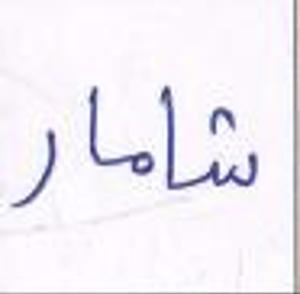 شامار